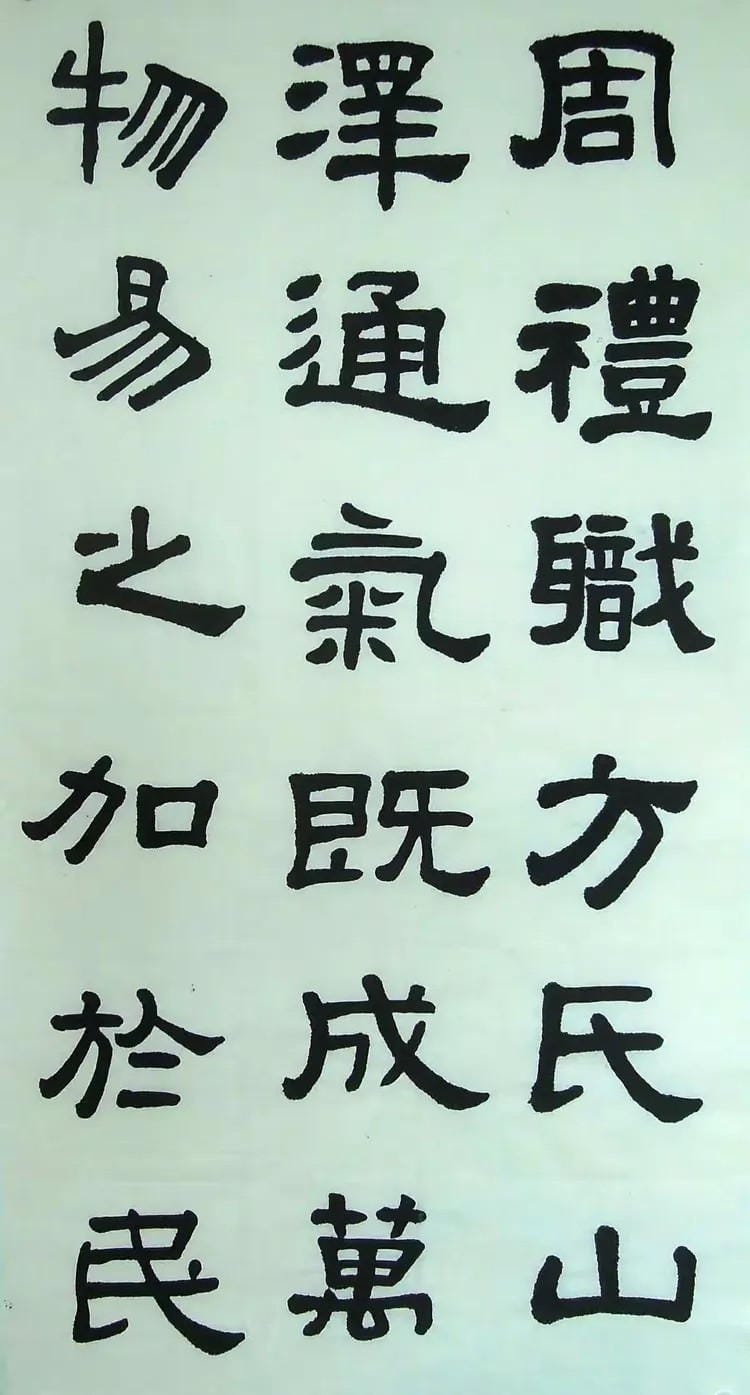 周禮職方氏山
澤通氣既成萬
物易之加於民